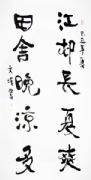 江邨長夏爽
田舍晚涼多